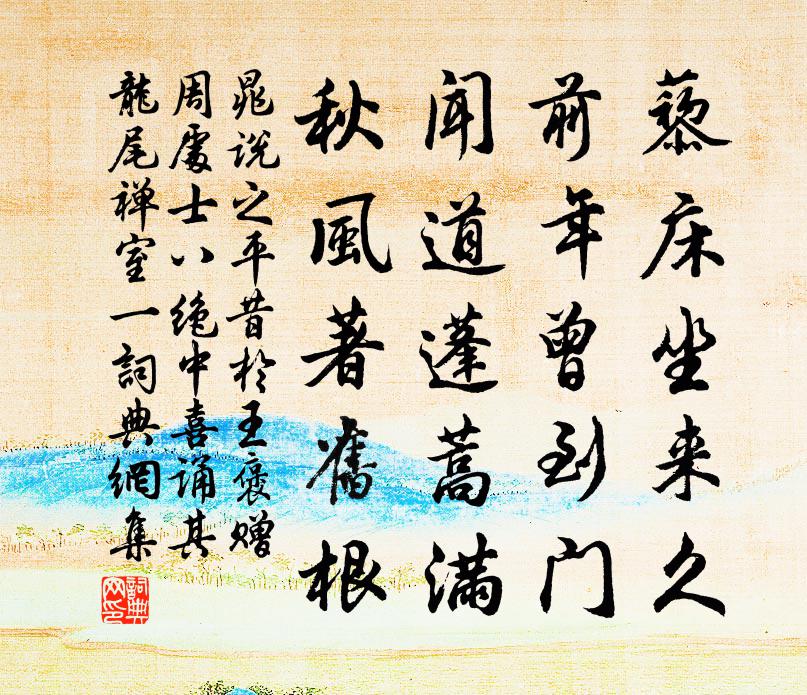 藜床坐来久
前年曾到门
闻道蓬蒿满
秋風著舊根
晁说之平昔於王褒赠
周處士八绝中喜诵其
龍尾禅室一詞典網集
詞典网印